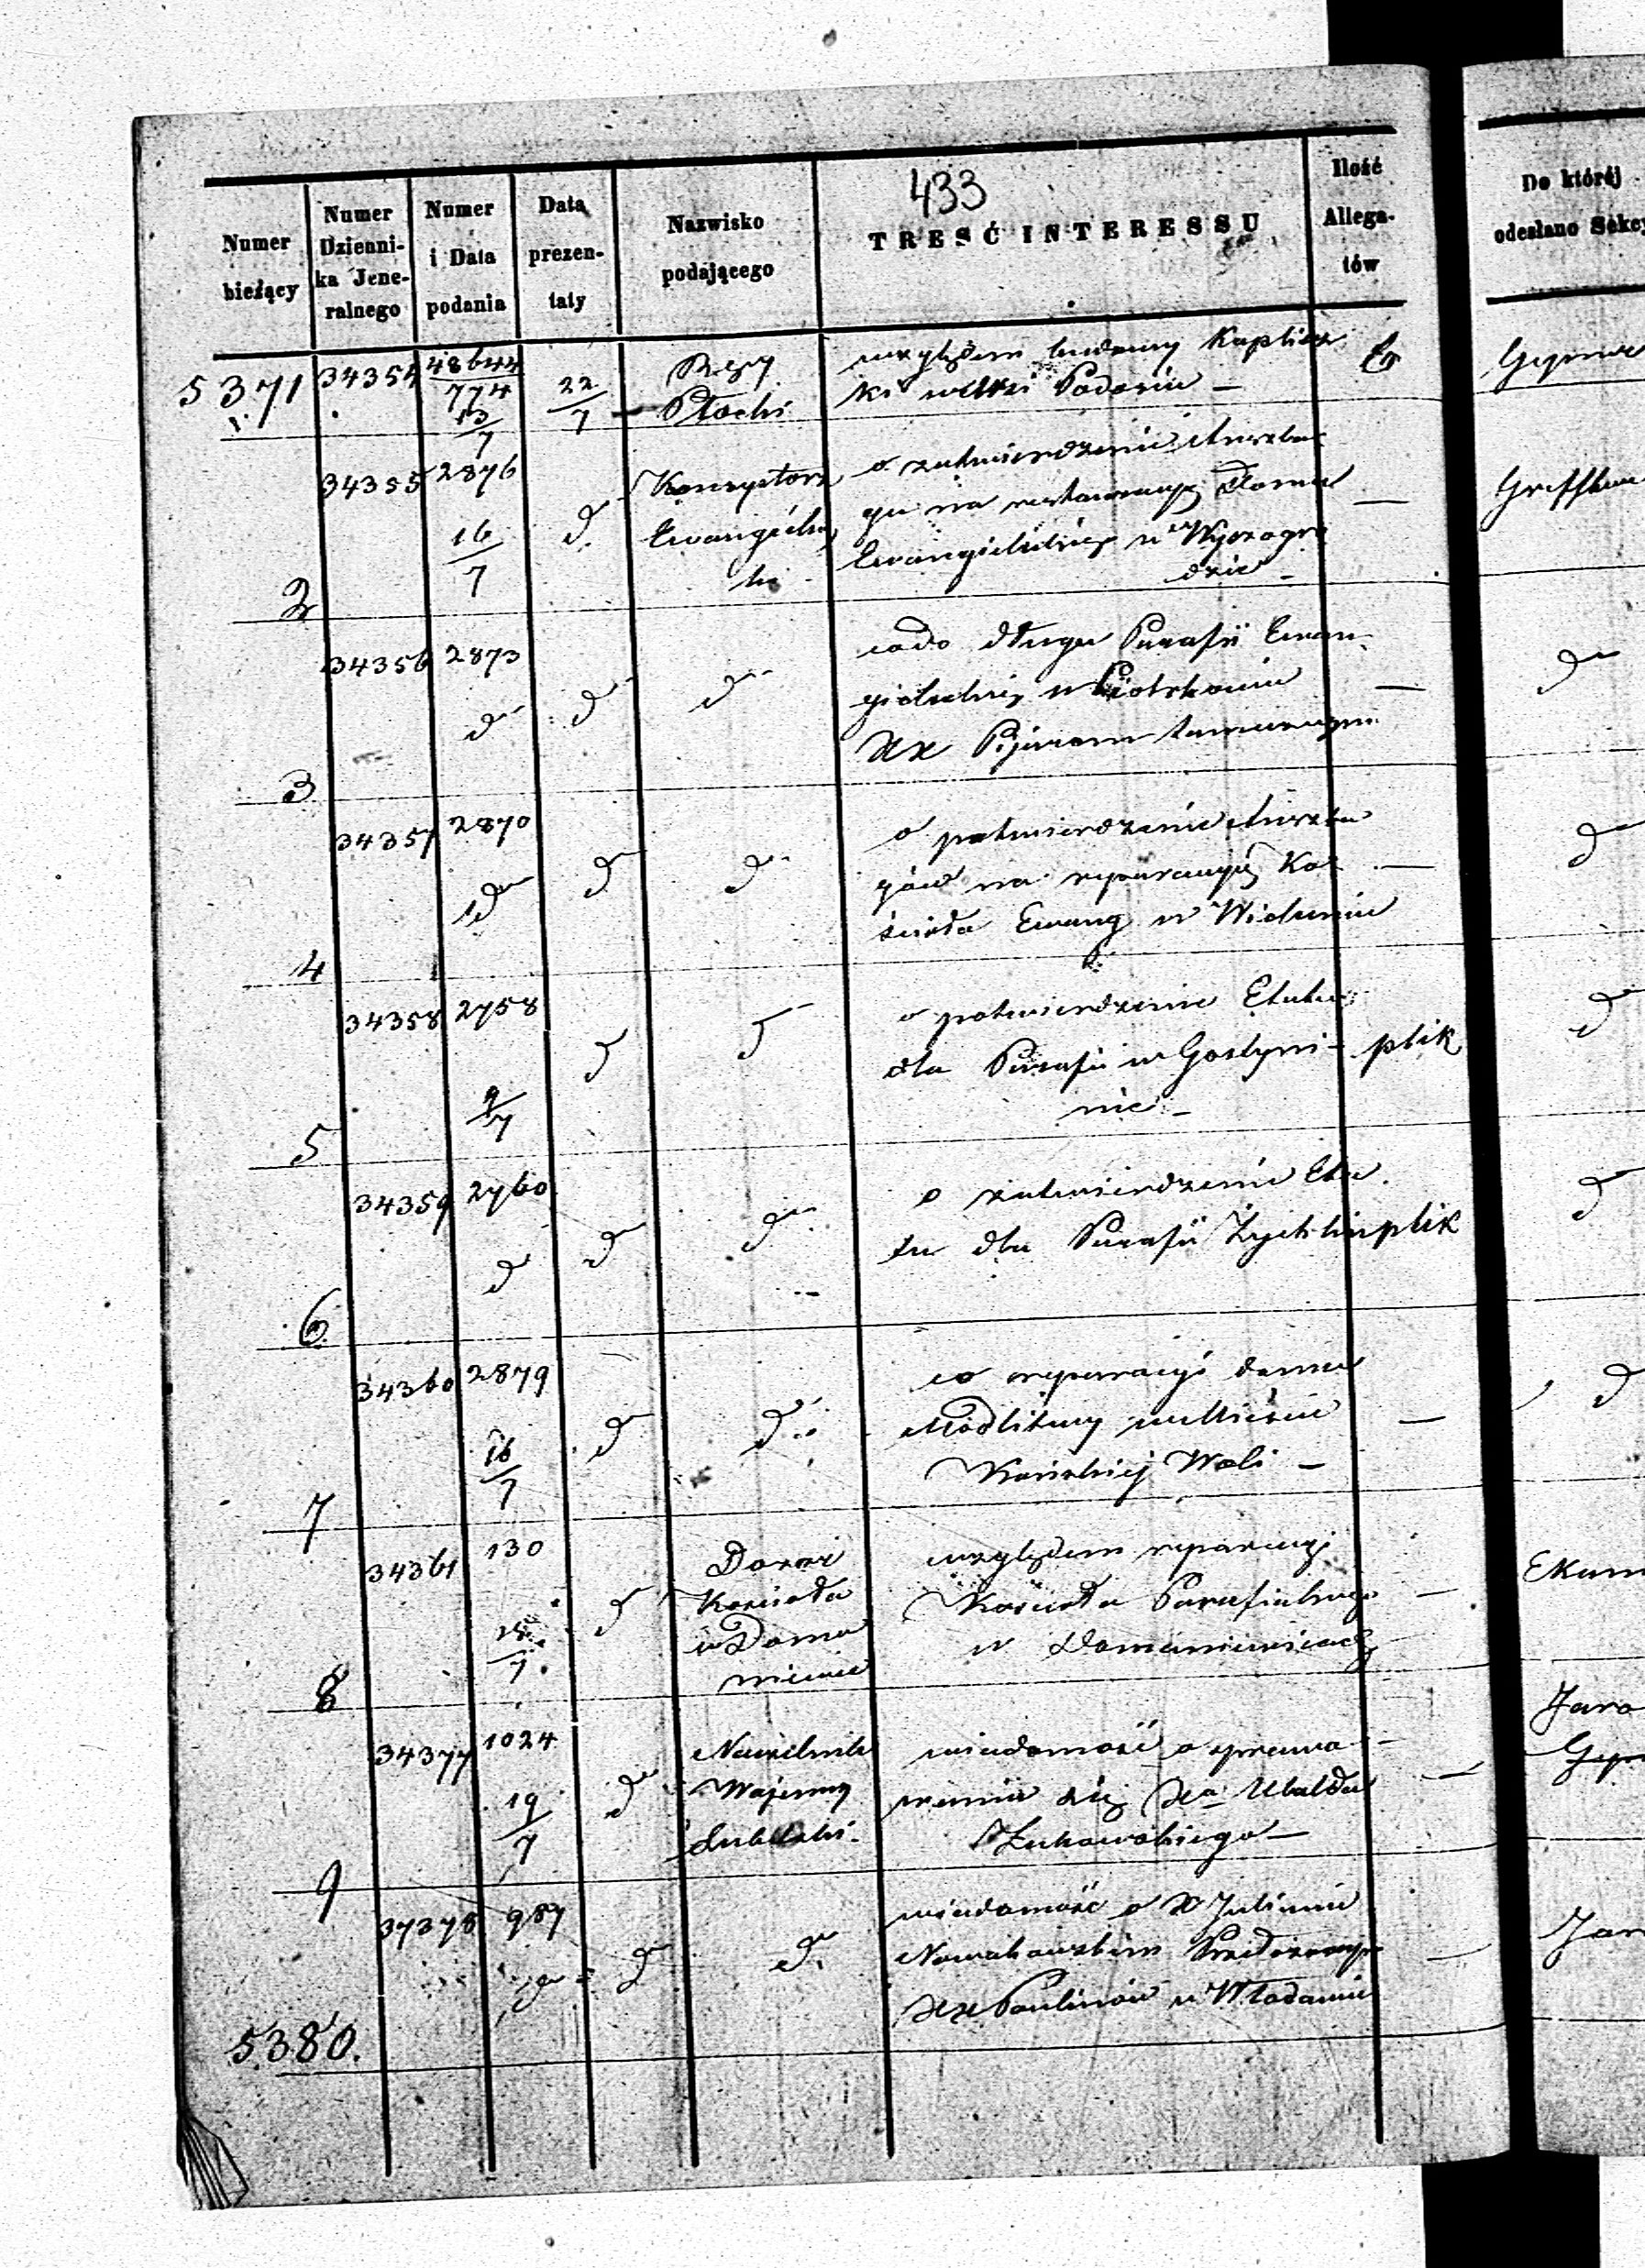 433
Numer bieżący
Numer Dzienni-ka Jene-ralnego
Numer i Data podania
Data prezen-taty
Nazwisko podającego
TREŚĆ INTERESSU
Ilość Allega-tów
Do której odesłano Sekcy
5371 34354 48644/774 13/7 22/7
Płocki
względem budowy Kaplicz
ki we wsi
34355 2876 16/7 d
Konsystorz
Ewangielic
ki
o zatwierdzenie Anszla
gu na restauracyę Domu
Ewangielickiego w Wyszogro
dzie —
2
34356 2873 d d d
co do długu Parafii Ewan
gielickiej w Piotrkowie
XX Pijarom tamecznym
d
3
34357 2870 d d d
o potwierdzenie Anszla
gów na reparacyę Ko
ścioła Ewang w Wieluniu
—
d
4
34358 2758 9/7 d d
o potwierdzenie Etatu
dla Parafii w Gostyni-
nie —
plik
d
5
34359 2760 d d d
o zatwierdzenie Eta
tu dla Parafii Żychlin
plik
d
6
34360 2879 16/7 d d
co reparacyi domu
Modlitwy w Mieście
Końskiej Woli —
—
d
7
34361 130 15/7 d
Dozór
Kościoła
w Doma
niewic
względem reparacyi
Kościoła Parafialnego
w Domaniewicach
—
8
34377 1024 19/7 d
Naczelnik
Wojenny
Lubelski
wiadomość o sprawo
waniu się Xa Ubalda
Żukowskiego —
—
9
37378 987 d d d
wiadomość o X Julianie
Nowakowskim
XX Paulinów w Włodawie
—
5380.